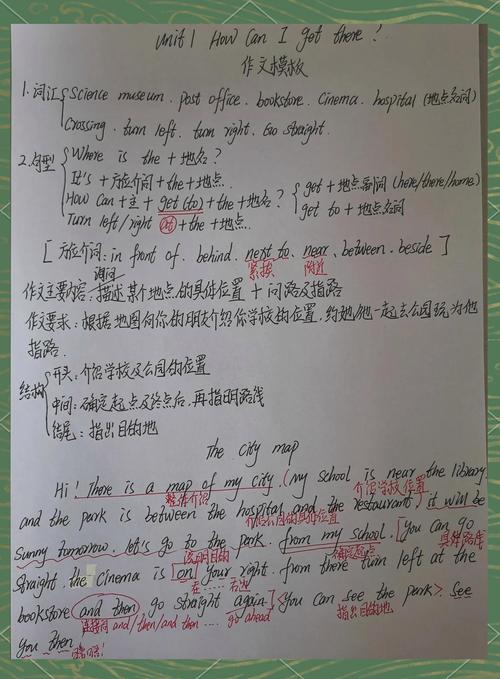 Unit 1 How Can I get there?
作文模板
1.词汇 Science museum. post office. bookstore. Cinema. hospital (地点名词)
Crossing. turn left. turn right. Go straight.
2.句型 Where is the + 地名?
It's + 方位介词 + the + 地点.
How Can + 主 + get (to) + the + 地名? get + 地点副词 (here/there/home)
Turn left/right at + the + 地点. get to + 地点名词
[方位介词: in front of. behind. next to. near. between. beside]
紧挨 附近
询问
作文主要内容: 描述某个地点的具体位置 + 问路及指路
作文要求: 根据地图向你的朋友介绍你学校的位置, 约她/他一起去公园玩为他
指路.
结构 开头: 介绍学校及公园的位置
中间: 确定起点及终点后, 再指明路线
结尾: 指出目的地
The city map
Hi! There is a map of my city. (my school is near the library.
整体介绍 介绍学校位置
and the park is between the hospital and the restaurant) it will be
介绍公园的具体位置
Sunny tomorrow. let's go to the park. from my school. [You can go
说明目的 确定起点 具体路线
straight. the Cinema is on your right. from there turn left at the
在……右边
bookstore and then go straight again.] <You can see the park>. see
连接词 and/then/and then .... go ahead 指出目的地
you then.